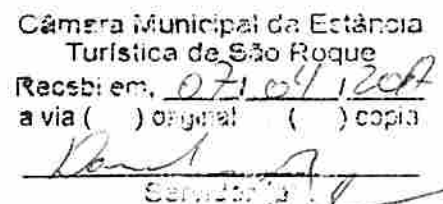 Câmara Municipal da Estância
Turística de São Roque
Recebi em, 07/04/2017
a via ( ) original ( ) copia
Servidor(a)